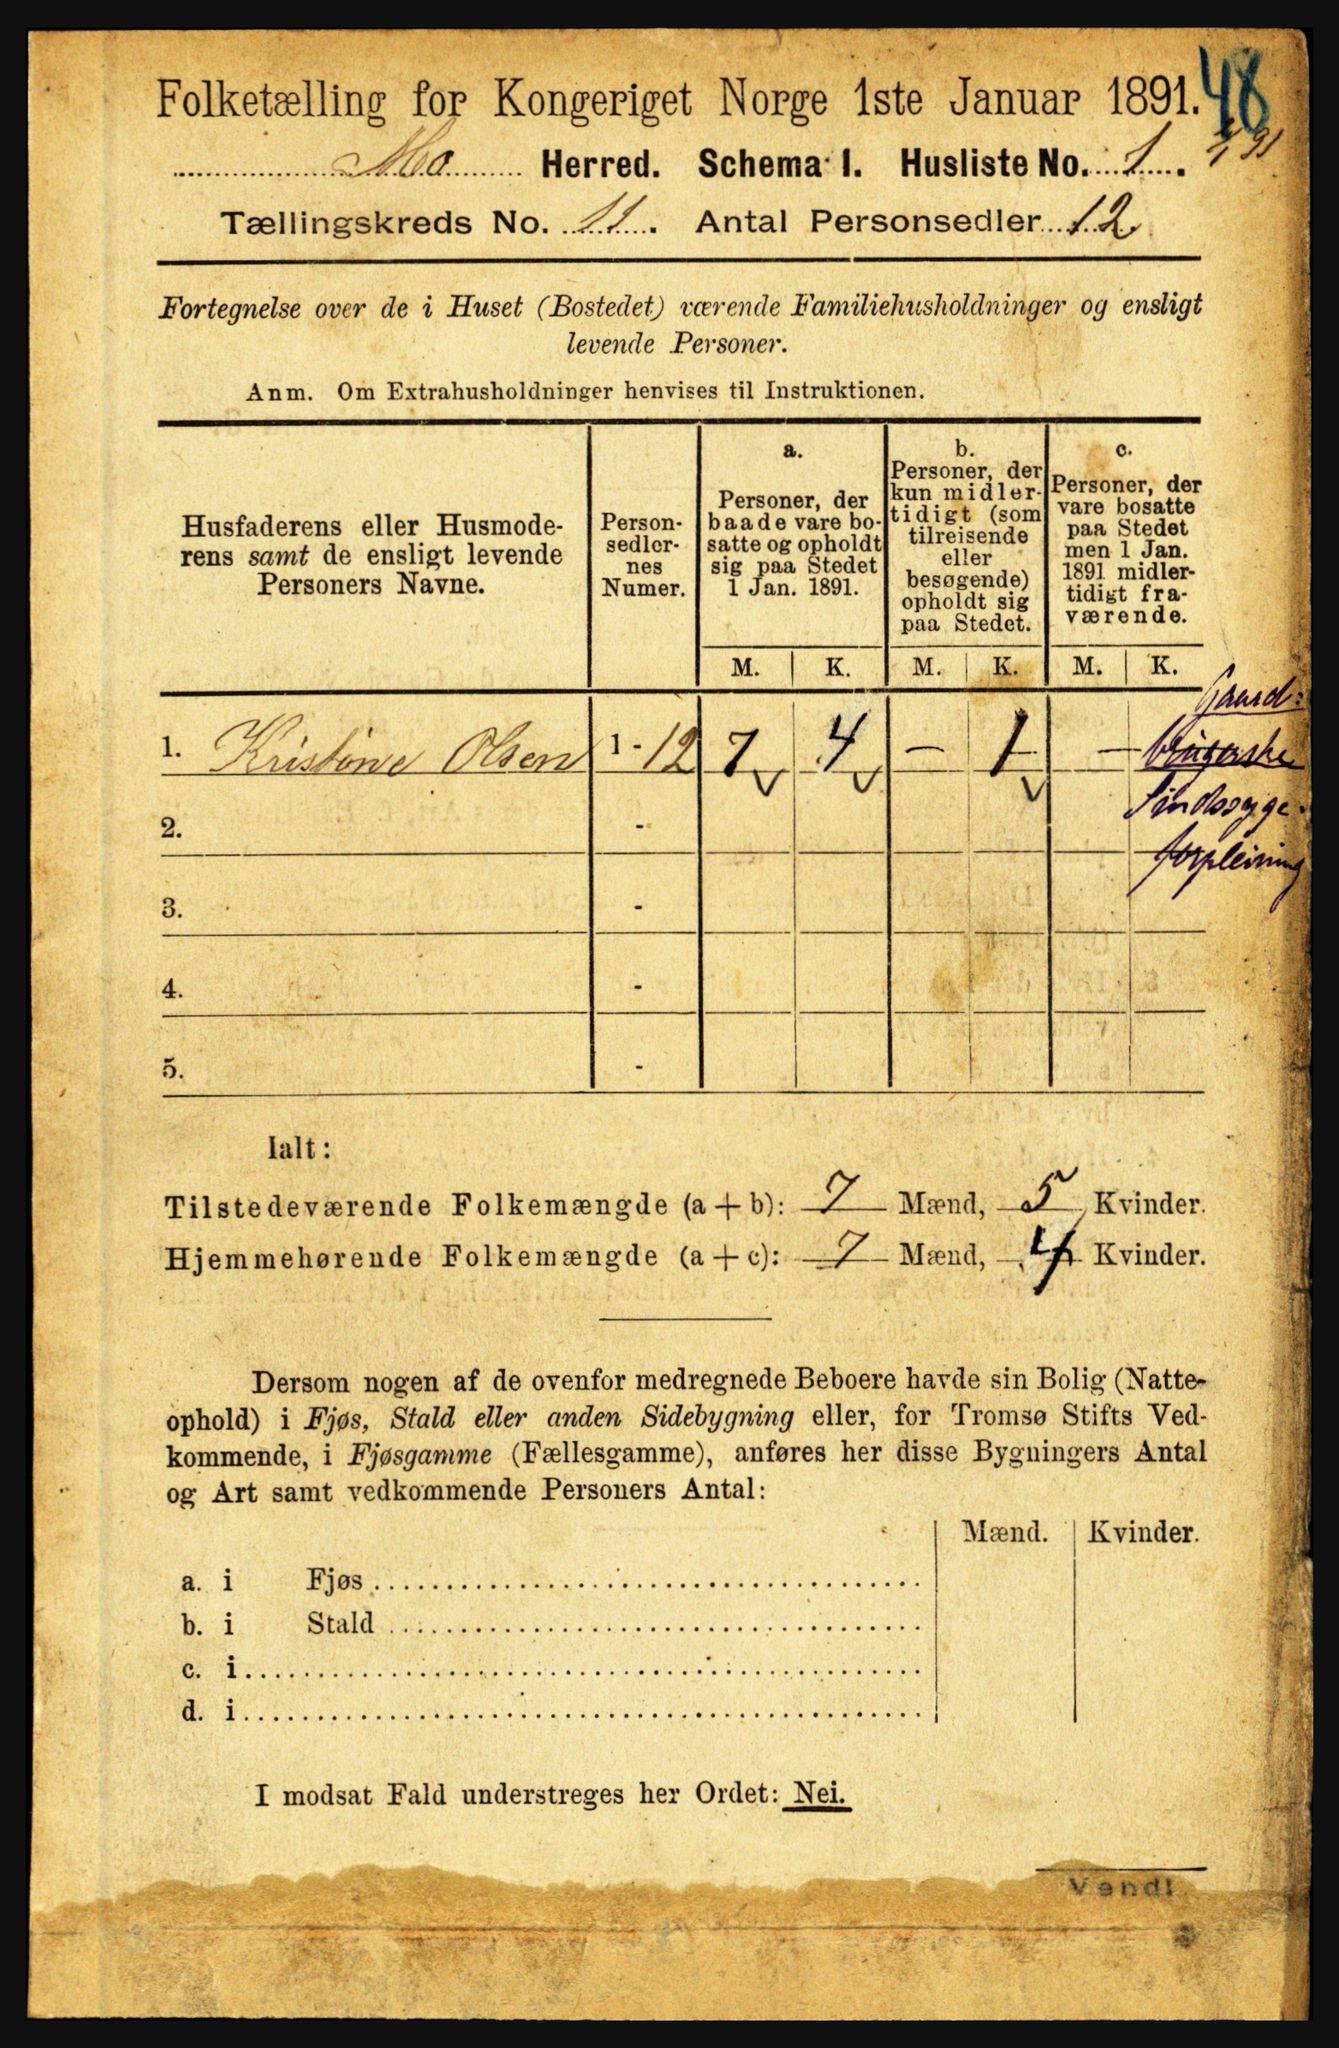 Folketælling for Kongeriget Norge 1ste Januar 1891.
48
Mo Herred. Schema I. Husliste No. 1.
Tællingskreds No. 11. Antal Personsedler 12
Fortegnelse over de i Huset (Bostedet) værende Familiehusholdninger og ensligt
levende Personer.
Anm. Om Extrahusholdninger henvises til Instruktionen.
Husfaderens eller Husmode-
rens samt de ensligt levende
Personers Navne.
Person-
sedler-
nes
Numer.
a.
Personer, der
baade vare bo-
satte og opholdt
sig paa Stedet
1 Jan. 1891.
b.
Personer, der
kun midler-
tidigt (som
tilreisende
eller
besøgende)
opholdt sig
paa Stedet.
c.
Personer, der
vare bosatte
paa Stedet
men 1 Jan.
1891 midler-
tidigt fra-
værende.
M. K. M. K. M. K.
Gaard-
brugerske
Sindssyge-
forpleining
1. Kristine Olsen 1 - 12 7 4 - 1 -
2. -
3. -
4. -
5. -
Ialt:
Tilstedeværende Folkemængde (a + b): 7 Mænd, 5 Kvinder.
Hjemmehørende Folkemængde (a + c): 7 Mænd, 4 Kvinder.
Dersom nogen af de ovenfor medregnede Beboere havde sin Bolig (Natte-
ophold) i Fjøs, Stald eller anden Sidebygning eller, for Tromsø Stifts Ved-
kommende, i Fjøsgamme (Fællesgamme), anføres her disse Bygningers Antal
og Art samt vedkommende Personers Antal:
Mænd. Kvinder.
a. i Fjøs
b. i Stald
c. i
d. i
I modsat Fald understreges her Ordet: Nei.
Vend!